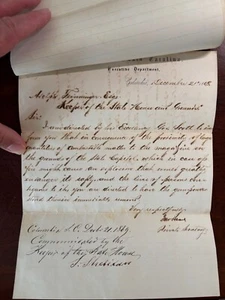 Executive Department,
Columbia, December 21st 186
Keeper of the State House and Grounds
Sir:
I am directed by his Excellency Gov Scott to in
form you that in consequence of the proximity of large
quantities of combustible matter to the magazine on
the grounds of the State Capitol, which in case of
fire might cause an explosion that would greatly
endanger its safety and the lives of persons who
you are directed to have the gunpowder
removed immediately
Very respectfully
Private Secretary
Columbia S.C. Dec 21. 1869.
Commissioned by the
Keeper of the State House